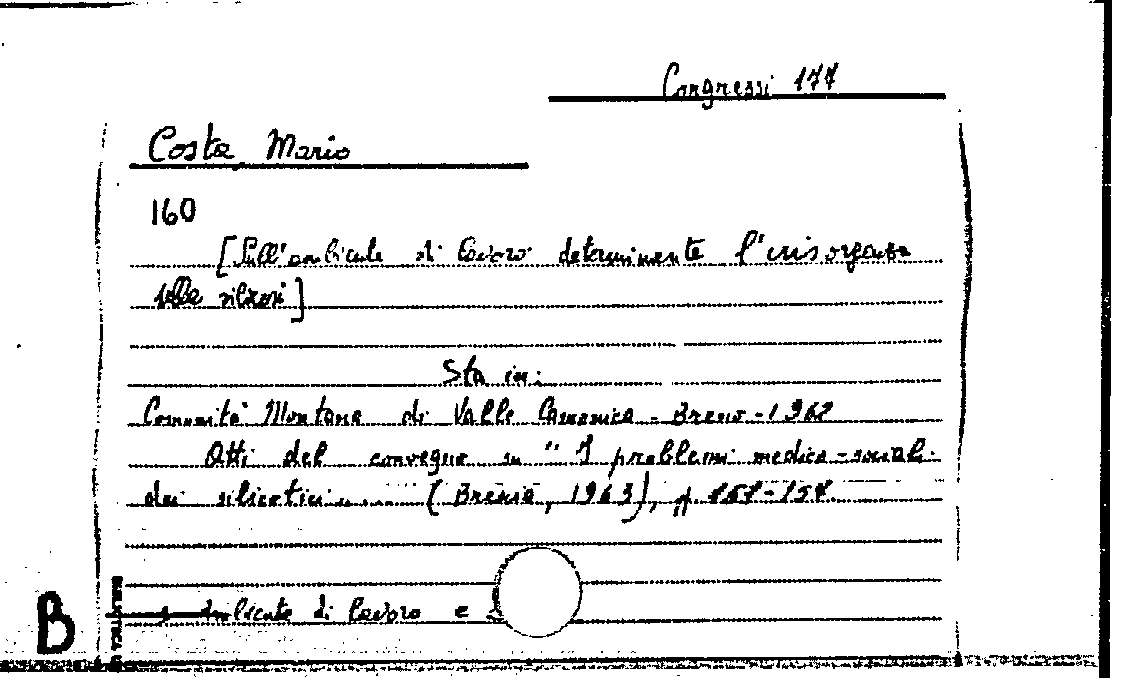 Congressi 177
Costa Mario
160
[Sull'ambiente di lavoro determinante l'insorgenza
della silicosi]
Sta in:
Comunità Montana di Valle Camonica - Breno - 1962
Atti del convegno su " I problemi medico-sociali
dei silicotici..... (Brescia, 1963), p 151-154.
Ambiente di lavoro e
B
BIBLIOTECA